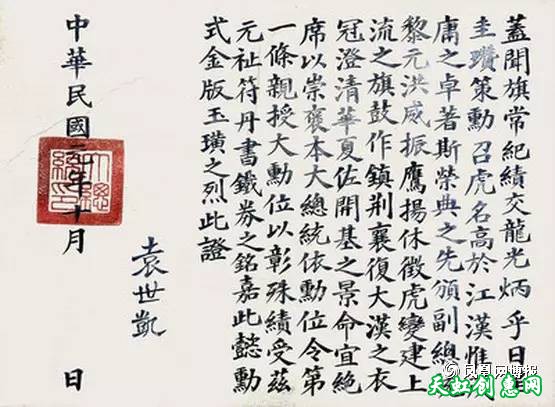 蓋聞旗常紀績交龍光炳乎日
圭瓚策勳召虎名高於江漢惟
庸之卓著斯榮典之先頒副總
黎元洪威振鷹揚休徵虎變建上
流之旗鼓作鎮荆襄復大漢之衣
冠澄清華夏佐開基之景命宜絶
席以崇襃本大總統依勳位令第
一條親授大勳位以彰殊績受茲
元祉符丹書鐵券之銘嘉此懿勳
式金版玉璜之烈此證
袁世凱
中華民國二年十月 日
凤凰网博报
天虹创意网